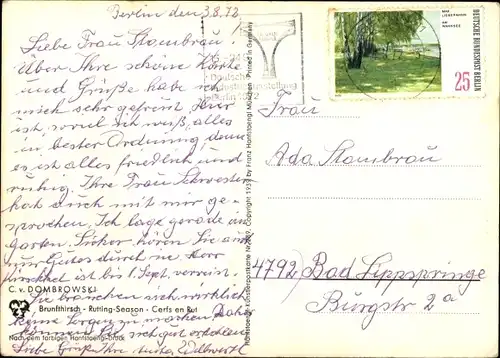 Berlin den 3.8.72
Liebe Frau Stambrau!
Über Ihre schöne Karte
und Grüße habe ich
mich sehr gefreut. Hier
ist, soviel ich weiß, alles
in bester Ordnung, denn
es ist alles friedlich und
ruhig. Ihre Frau Schwester
hat auch mit mir ge-
sprochen. Ich lage gerade im
Garten. Sicher hören Sie auch
nur Gutes durch sie. Herr
ist bis 1. Sept. verreist.
C. v. DOMBROWSKI
Sie brauchen sich wirklich
Brunfthirsch · Rutting-Season · Cerfs en Rut
keine Sorgen zu machen.
können Sie sich gut erholen
Nach dem farbigen Hanfstaengl-Druck
Liebe Grüße Ihre
Deutsche
Industrieausstellung
Berlin 1972
Hanfstaengl-Künstlerpostkarte Copyright 1939 by Franz Hanfstaengl München · Printed in Germany
MAX
LIEBERMANN
AM
WANNSEE
DEUTSCHE BUNDESPOST BERLIN
25
Frau
Ada Stambrau
4792 Bad Lippspringe
Burgstr 2a